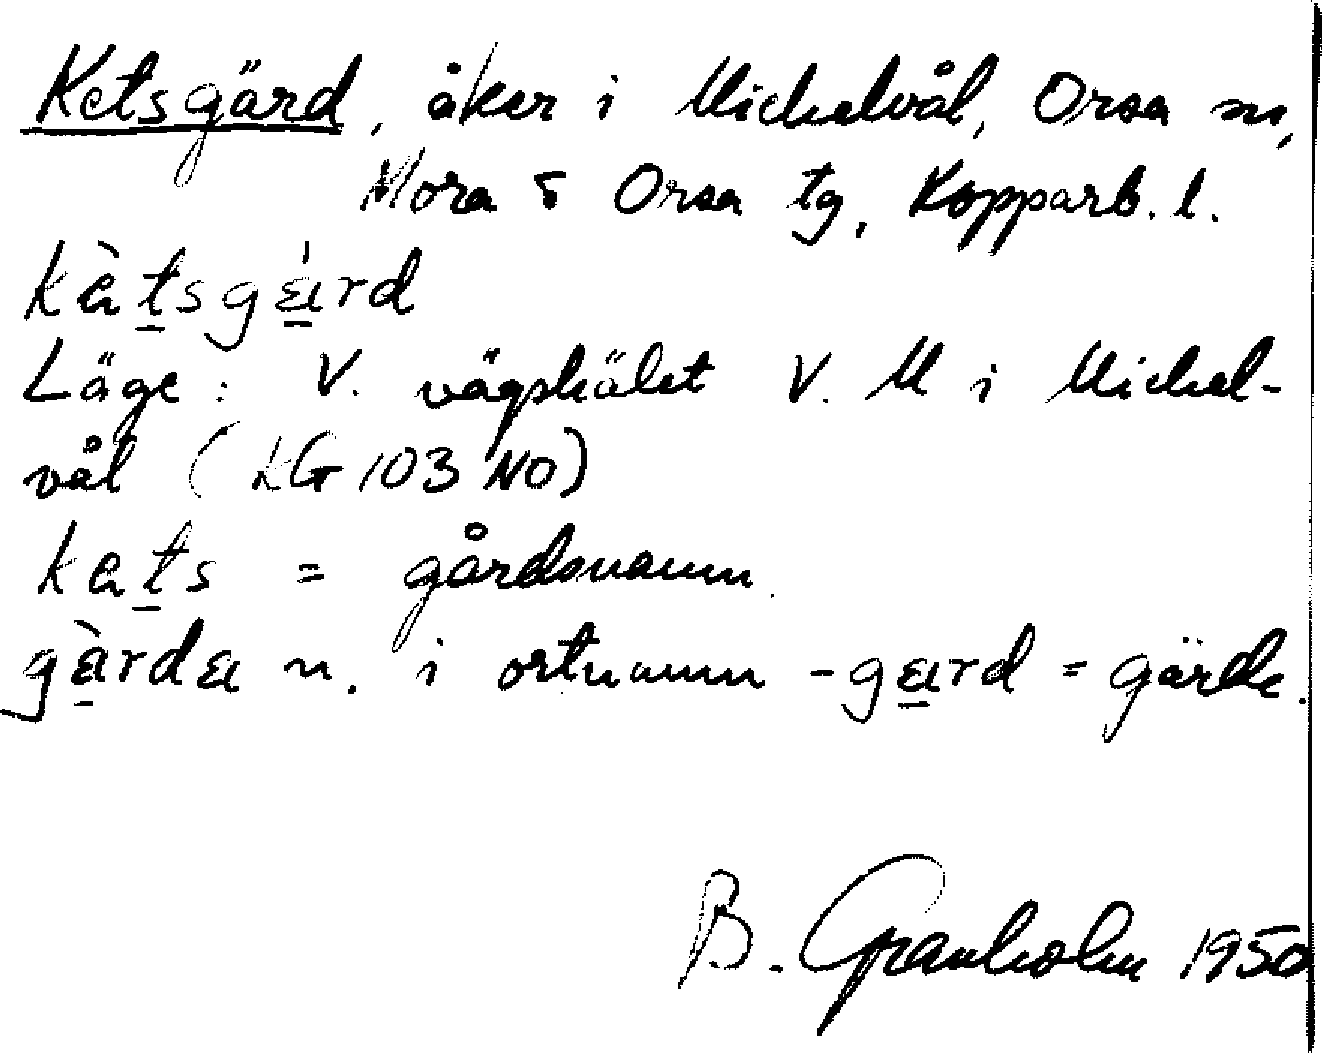 Ketsgärd, åker i Michelvål, Orsa sn,
Mora & Orsa tg, Kopparb. l.
kàtsgɛ́ɩrd
Läge: V. vägskälet V. M i Michel-
vål (KG 103 NO)
kats = gårdsnamn.
gàrda n. i ortnamn -gaɩrd = gärde.
B. Granholm 1950